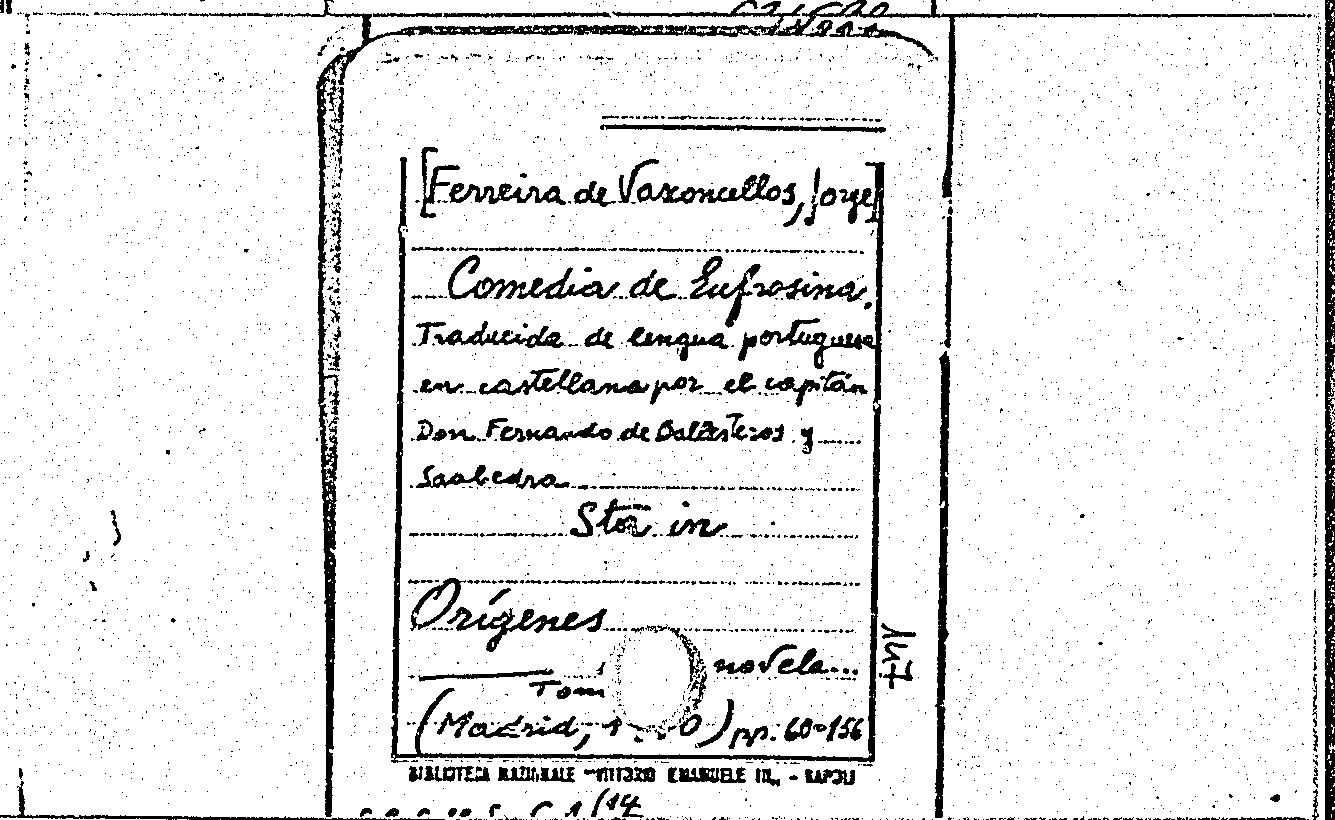 [Ferreira de Vaxoncellos, Jorge]
Comedia de Eufrosina.
Traducida de lengua portuguesa
en castellana por el capitán
Don Fernando de Ballesteros y
Saabedra.
Sta in
Orígenes
novela...
Tom
(Madrid, 1 0) pp. 60-156
147
BIBLIOTECA NAZIONALE "VITTORIO EMANUELE III" - NAPOLI